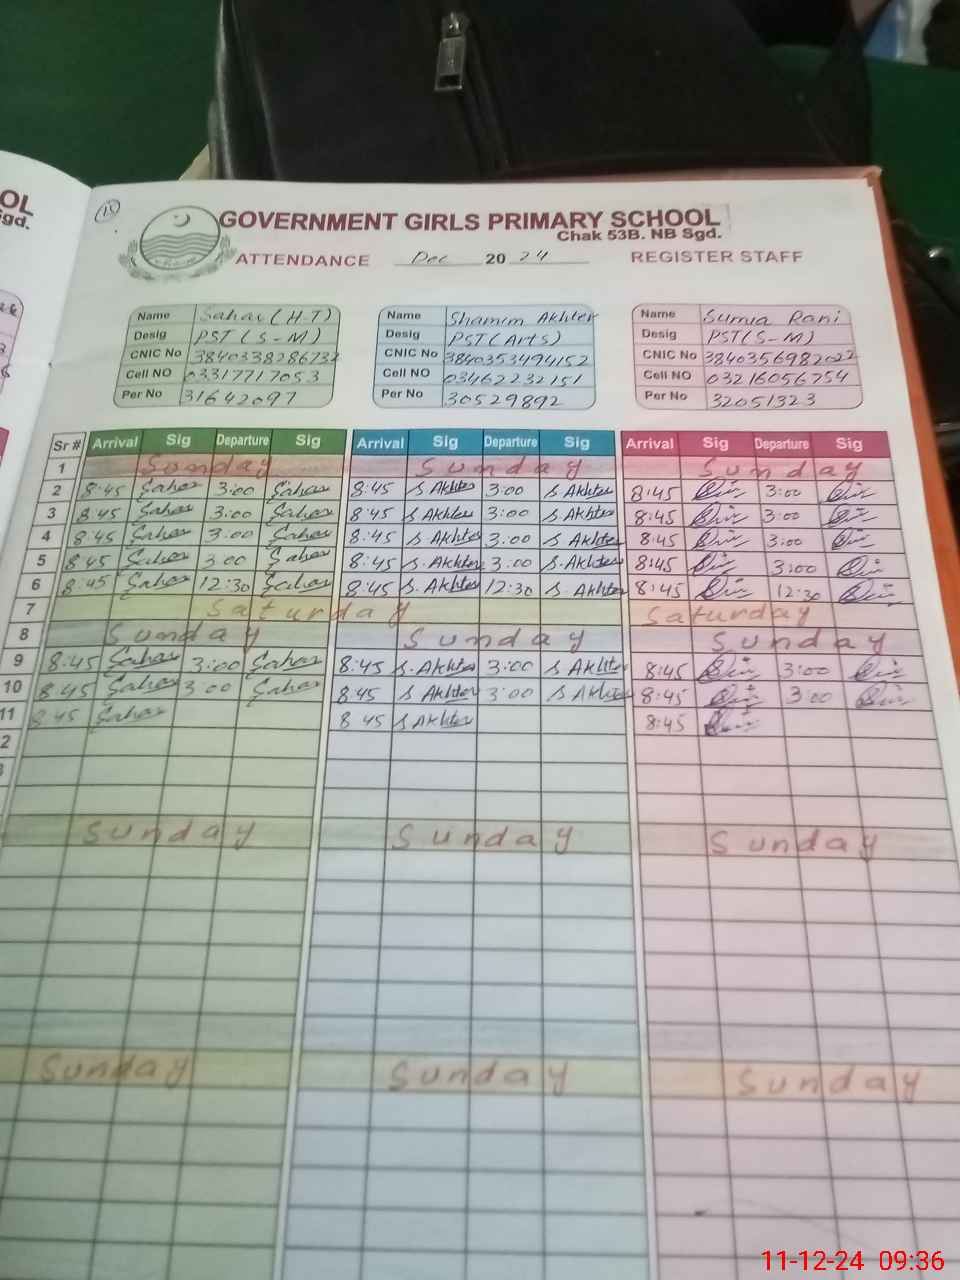 OL
Sgd.
15
GOVERNMENT GIRLS PRIMARY SCHOOL
Chak 53B. NB Sgd.
ATTENDANCE Dec 20 24 REGISTER STAFF
Name Sahar (H-T) Name Shamim Akhter Name Sumia Rani
Desig PST (S-M) Desig PST (Arts) Desig PST (S-M)
CNIC No CNIC No 3840353494152 CNIC No 3840356982022
Cell NO 03317717053 Cell NO 03462232151 Cell NO 03216056754
Per No 31642097 Per No 30529892 Per No 32051323
Sr # Arrival Sig Departure Sig Arrival Sig Departure Sig Arrival Sig Departure Sig
1 Sunday Sunday Sunday
2 8:45 Sahar 3:00 Sahar 8:45 S. Akhter 3:00 S. Akhter 8:45 3:00
3 8:45 Sahar 3:00 Sahar 8:45 S. Akhter 3:00 S. Akhter 8:45 3:00
4 8:45 Sahar 3:00 Sahar 8:45 S. Akhter 3:00 S. Akhter 8:45 3:00
5 8:45 Sahar 3:00 Sahar 8:45 S. Akhter 3:00 S. Akhter 8:45 3:00
6 8:45 Sahar 12:30 Sahar 8:45 S. Akhter 12:30 S. Akhter 8:45 12:30
7 Saturday Saturday
8 Sunday Sunday Sunday
9 8:45 Sahar 3:00 Sahar 8:45 S. Akhter 3:00 S. Akhter 8:45 3:00
10 8:45 Sahar 3:00 Sahar 8:45 S. Akhter 3:00 S. Akhter 8:45 3:00
11 8:45 Sahar 8:45 S. Akhter 8:45
2
Sunday Sunday Sunday
Sunday Sunday Sunday
11-12-24 09:36